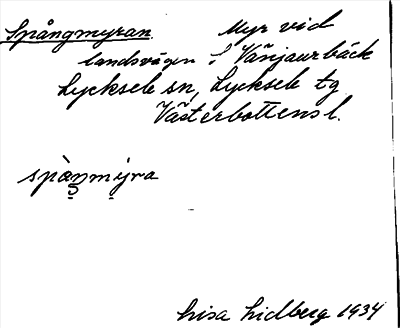 Spångmyran. Myr vid
landsvägen i Vänjaurbäck
Lycksele sn, Lycksele tg
Västerbottens l.
spàŋmýra
Lisa Lidberg 1934